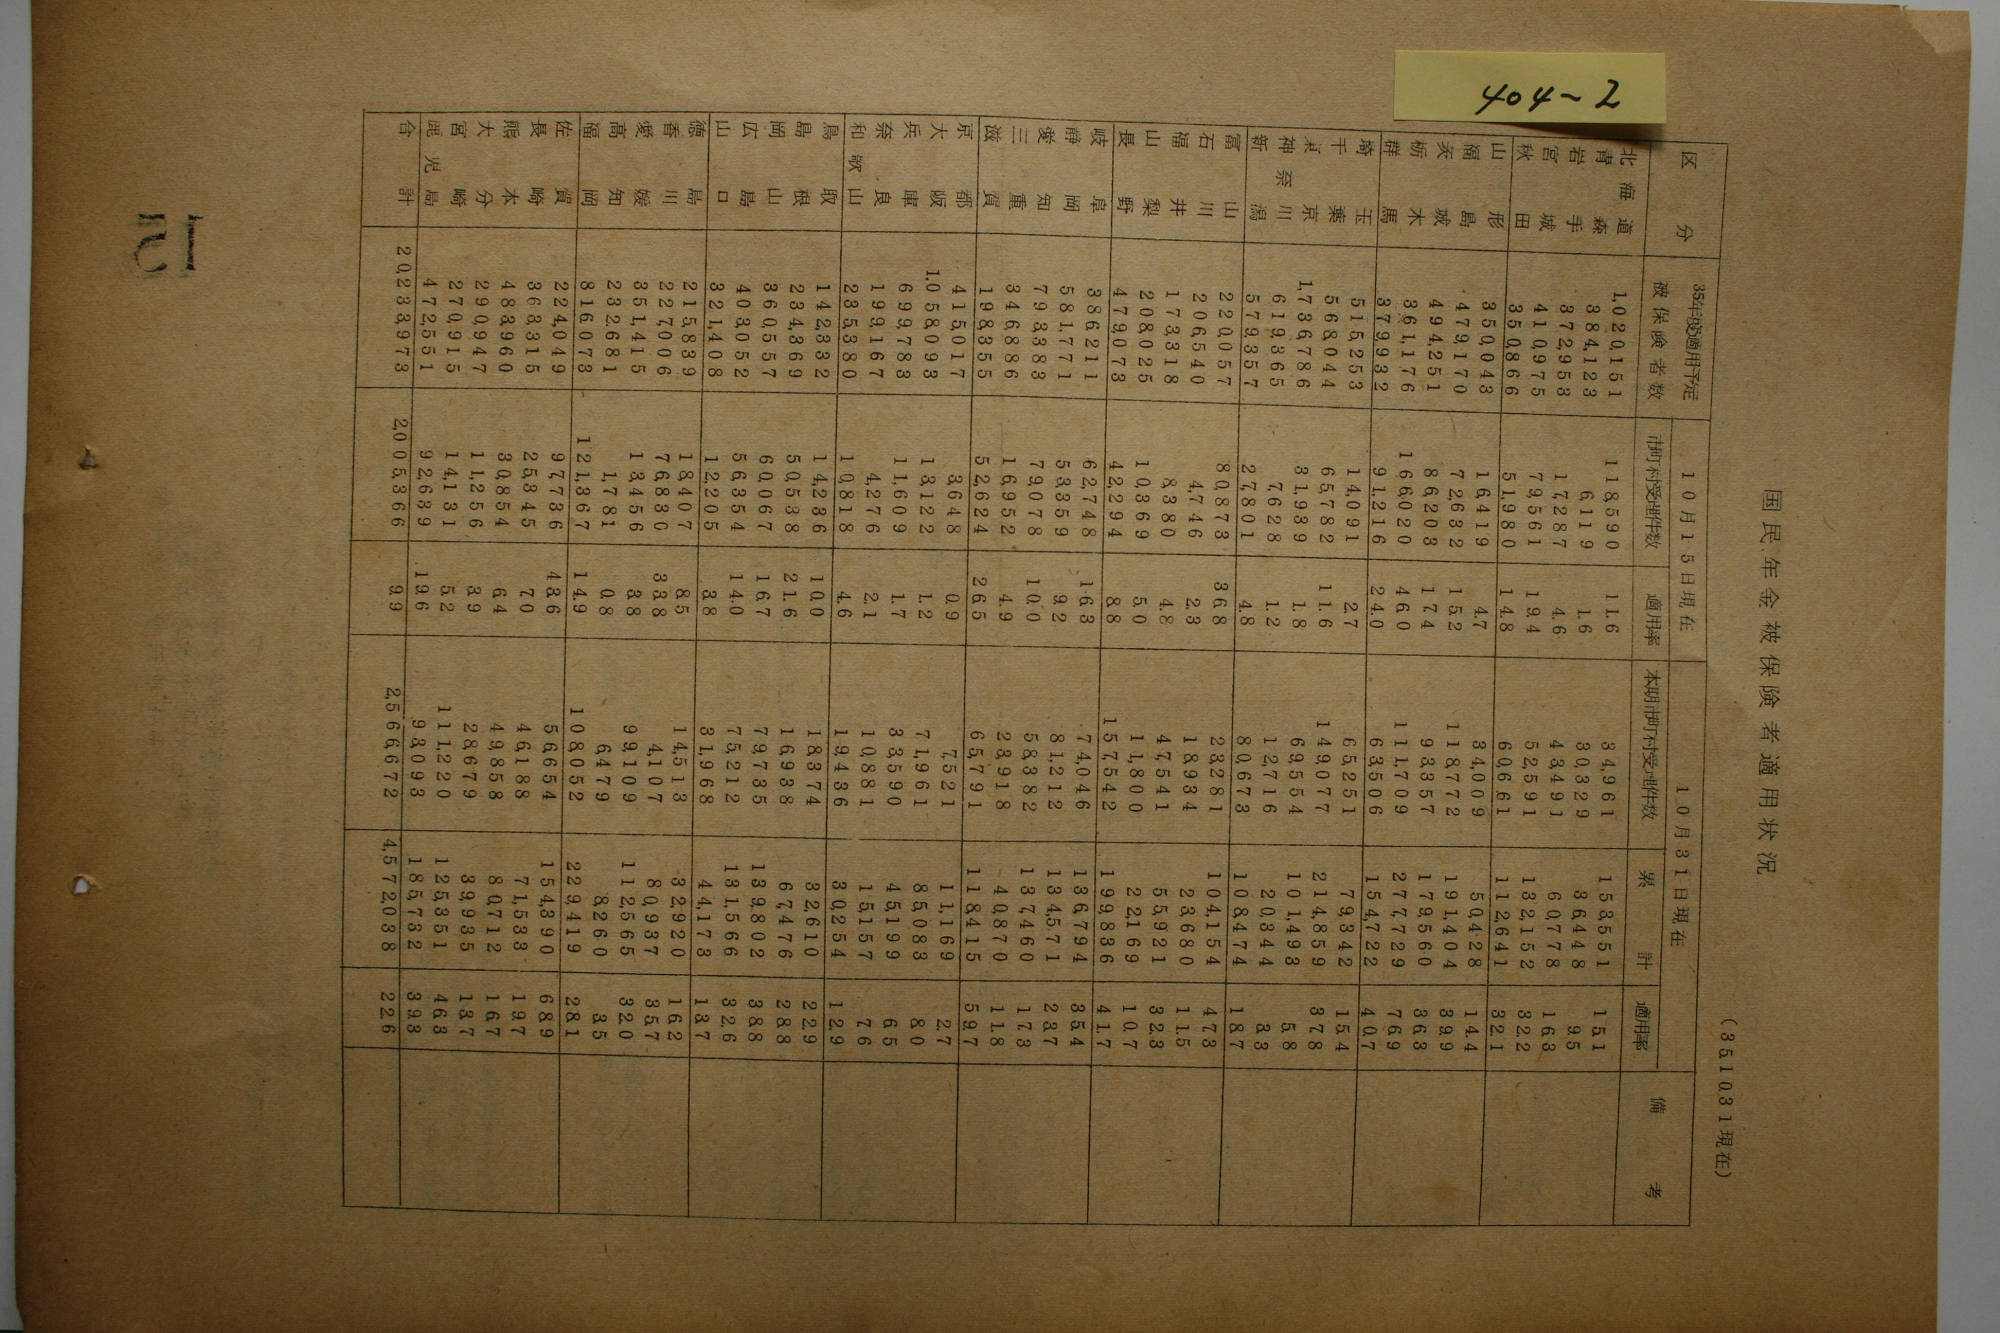 404-2
国民年金被保険者適用状況
(35.10.31現在)
区分 35年度適用予定被保険者数 10月15日現在 10月31日現在 備考
市町村受理件数 適用率 本期市町村受理件数 累計 適用率
北海道 1,020,151 118,590 11.6 34,961 153,551 15.1
青森 384,123 6,119 1.6 30,329 36,448 9.5
岩手 372,953 17,287 4.6 43,491 60,778 16.3
宮城 410,975 79,561 19.4 52,591 132,152 32.2
秋田 350,866 51,980 14.8 60,661 112,641 32.1
山形 350,043 16,419 4.7 34,009 50,428 14.4
福島 479,170 72,632 15.2 118,772 191,404 39.9
茨城 494,251 86,203 17.4 93,357 179,560 36.3
栃木 361,176 166,020 46.0 111,709 277,729 76.9
群馬 379,932 91,216 24.0 63,506 154,722 40.7
埼玉 515,253 14,091 2.7 65,251 79,342 15.4
千葉 568,044 65,782 11.6 149,077 214,859 37.8
東京 1,736,786 31,939 1.8 69,554 101,493 5.8
神奈川 619,365 7,628 1.2 12,716 20,344 3.3
新潟 579,357 27,801 4.8 80,673 108,474 18.7
富山 220,057 80,873 36.8 23,281 104,154 47.3
石川 206,540 4,746 2.3 18,934 23,680 11.5
福井 173,318 8,380 4.8 47,541 55,921 32.3
山梨 208,025 10,369 5.0 11,800 22,169 10.7
長野 479,073 42,294 8.8 157,542 199,836 41.7
岐阜 386,211 62,748 16.3 74,046 136,794 35.4
静岡 581,771 53,359 9.2 81,212 134,571 23.7
愛知 793,383 79,078 10.0 58,382 137,460 17.3
三重 346,886 16,952 4.9 23,918 40,870 11.8
滋賀 198,355 52,624 26.5 65,791 118,415 59.7
京都 415,017 3,648 0.9 7,521 11,169 2.7
大阪 1,058,093 13,122 1.2 71,961 85,083 8.0
兵庫 699,783 11,609 1.7 33,590 45,199 6.5
奈良 199,167 4,276 2.1 10,881 15,157 7.6
和歌山 235,380 10,818 4.6 19,436 30,254 12.9
鳥取 142,332 14,236 10.0 18,374 32,610 22.9
島根 234,369 50,538 21.6 16,938 67,476 28.8
岡山 360,557 60,067 16.7 79,735 139,802 38.8
広島 403,052 56,354 14.0 75,212 131,566 32.6
山口 321,408 12,205 3.8 31,968 44,173 13.7
徳島 215,839 18,407 8.5 14,513 32,920 16.2
香川 227,006 76,830 33.8 4,107 80,937 35.7
愛媛 351,415 13,456 3.8 99,109 112,565 32.0
高知 232,681 1,781 0.8 6,479 8,260 3.5
福岡 816,073 121,367 14.9 108,052 229,419 28.1
佐賀 224,049 97,736 43.6 56,654 154,390 68.9
長崎 363,315 25,345 7.0 46,188 71,533 19.7
熊本 483,960 30,854 6.4 49,858 80,712 16.7
大分 290,947 11,256 3.9 28,679 39,935 13.7
宮崎 270,915 14,131 5.2 111,220 125,351 46.3
鹿児島 472,551 92,639 19.6 93,093 185,732 39.3
合計 20,233,973 2,005,366 9.9 2,566,672 4,572,038 22.6
15